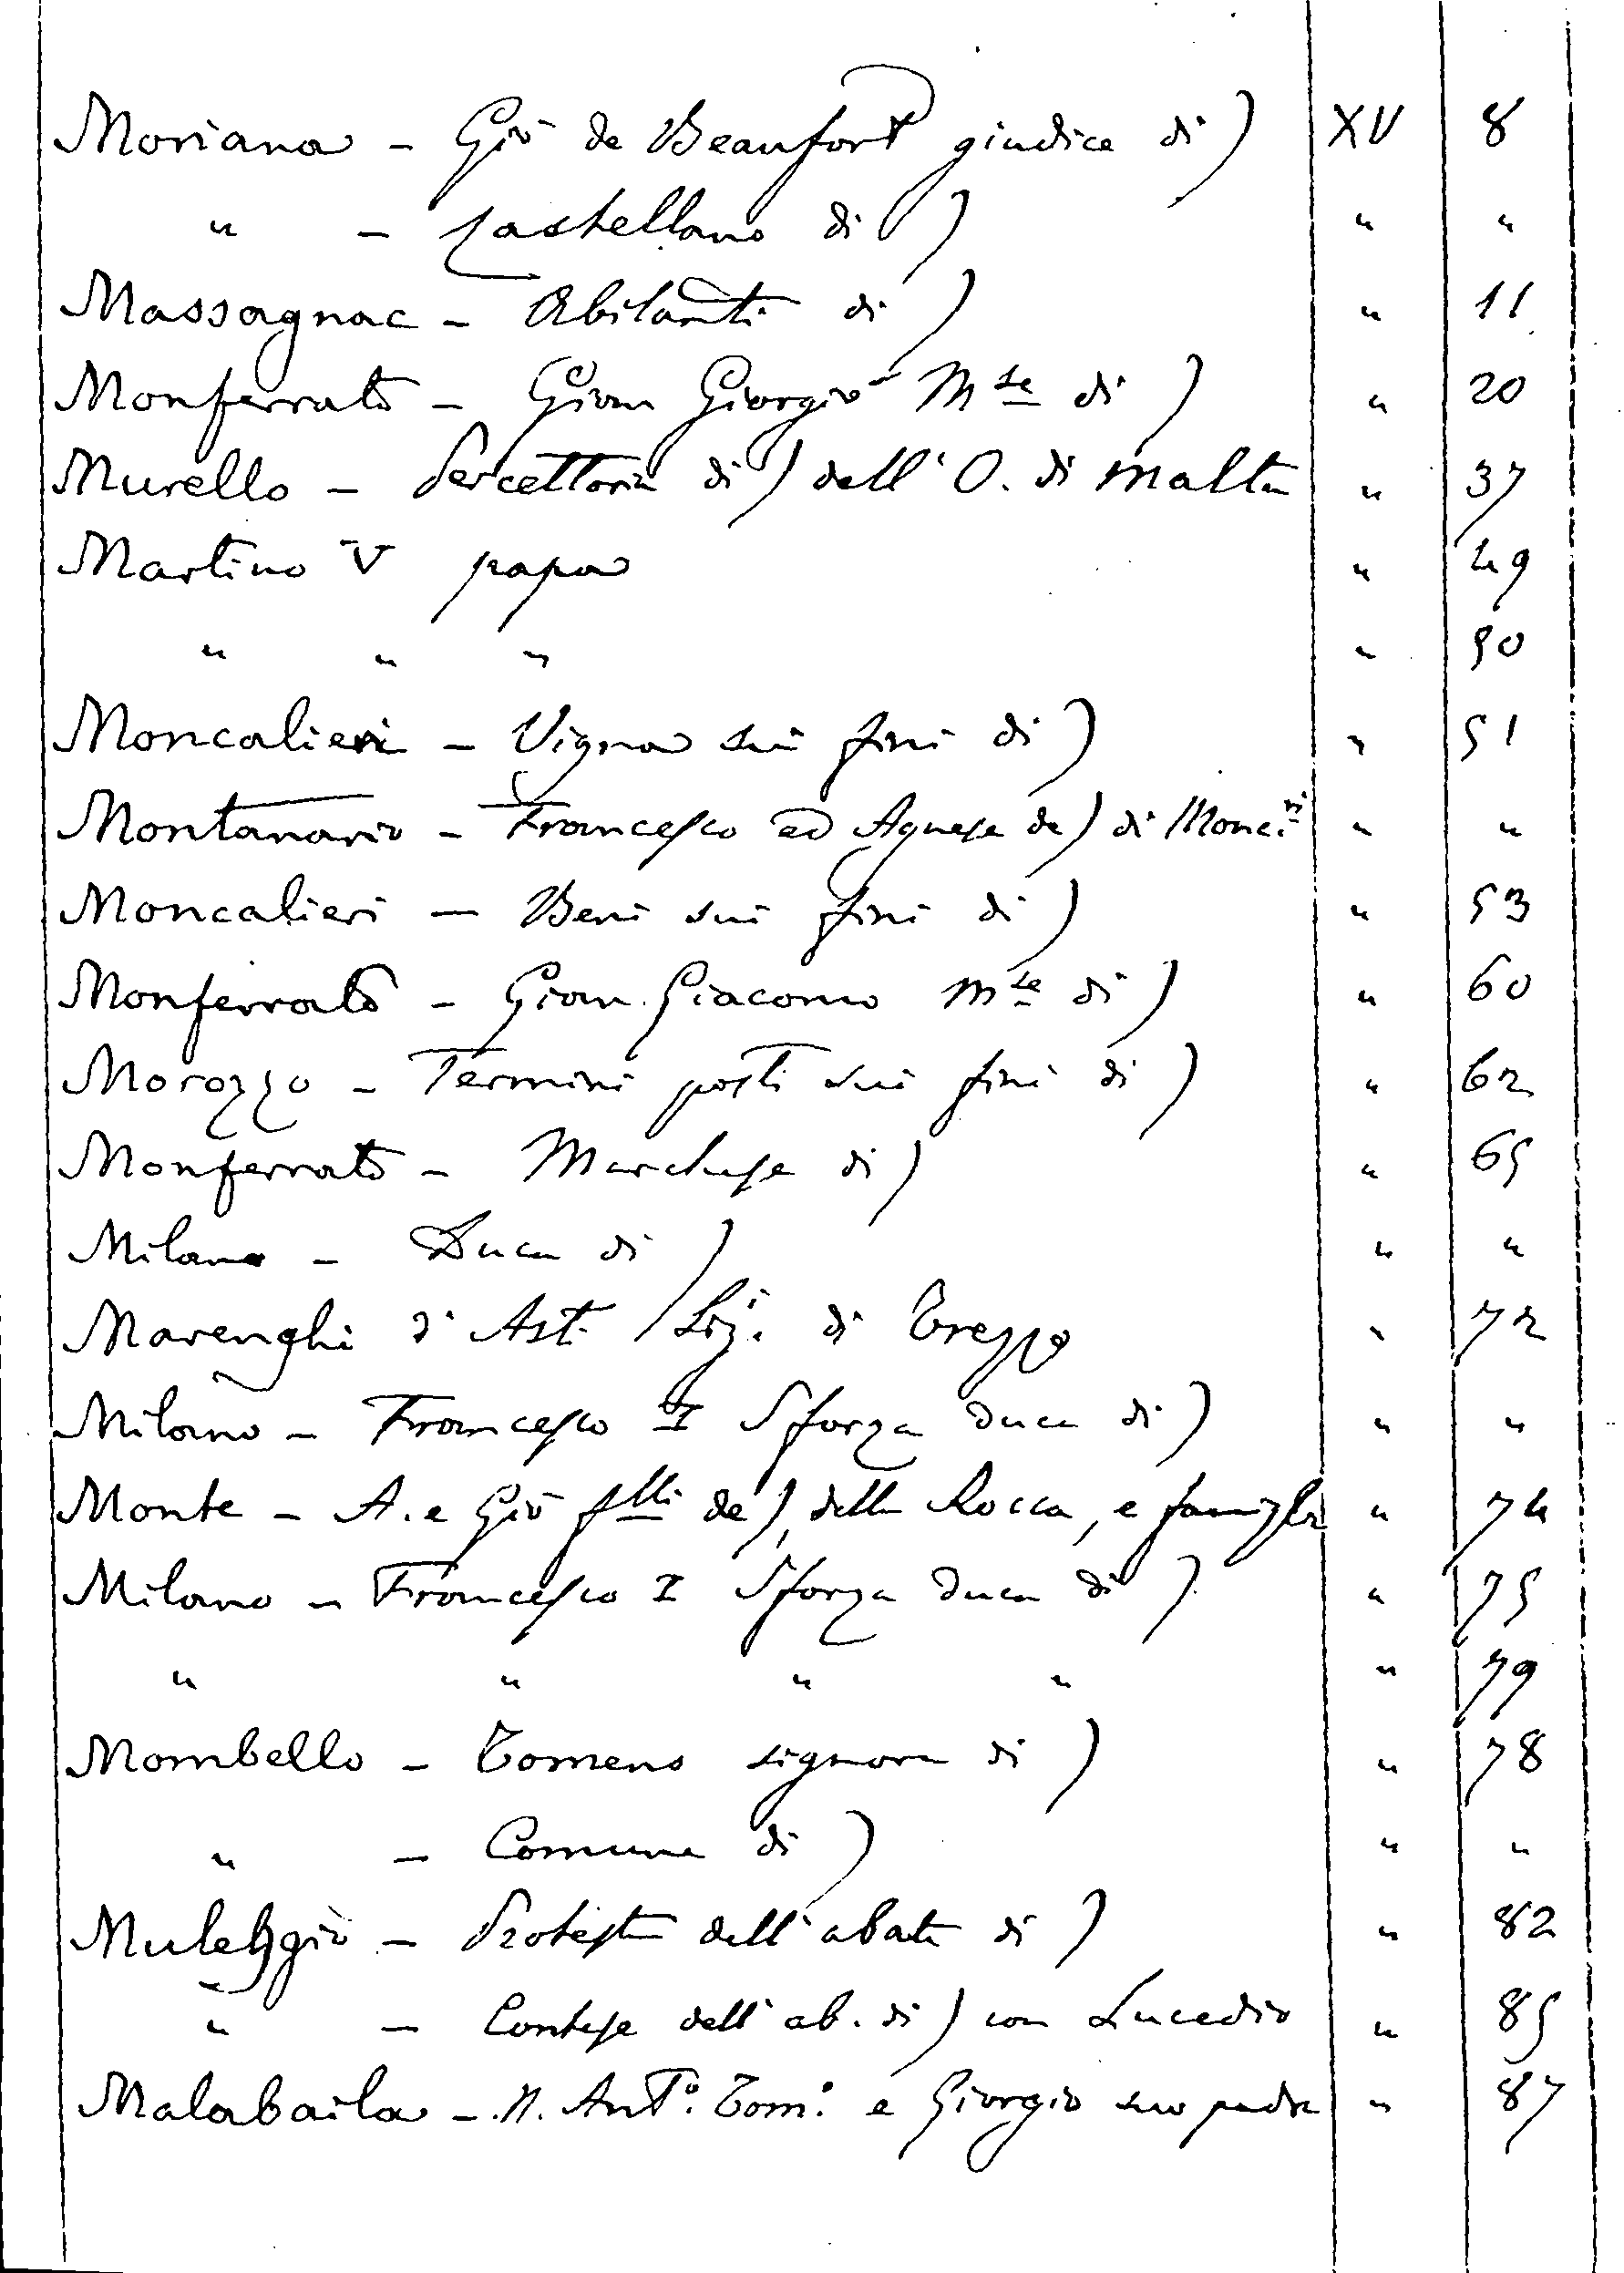 Moriana - Giò de Beaufort giudice di) XV 8
" - Castellano di) " "
Massagnac - Abitanti di) " 11
Monferrato - Gian Giorgio Mse di) " 20
Murello - Percettoria di) dell' O. di Malta " 37
Martino V papa " 49
" " " " 50
Moncalieri - Vigna sui fini di) " 51
Montanario - Francesco ed Agnese de) di Monc.ri " "
Moncalieri - Beni sui fini di) " 53
Monferrato - Gian Giacomo Mse di) " 60
Morozzo - Termini posti sui fini di) " 62
Monferrato - Marchese di) " 65
Milano - Duca di) " "
Marenghi d'Asti / Sig.i di Trezzo " 72
Milano - Francesco I Sforza duca di) " "
Monte - A. e Giò flli de), della Rocca, e famiglia " 74
Milano - Francesco I Sforza duca di) " 75
" " " " " 79
Mombello - Tomeno signora di) " 78
" - Comune di) " "
Muleggio - Protesta dell'abate di) " 82
" - Contese dell'ab. di) con Lucedio " 85
Malabaila - N. Anto. Tom.o e Giorgio suo padre " 87